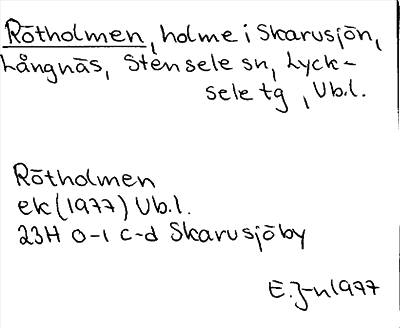 Rötholmen, holme i Skarusjön,
Långnäs, Stensele sn, Lyck-
sele tg, Vb.l.
Rötholmen
ek (1977) Vb.l.
23H 0-1 c-d Skarusjöby
E.J-n 1977